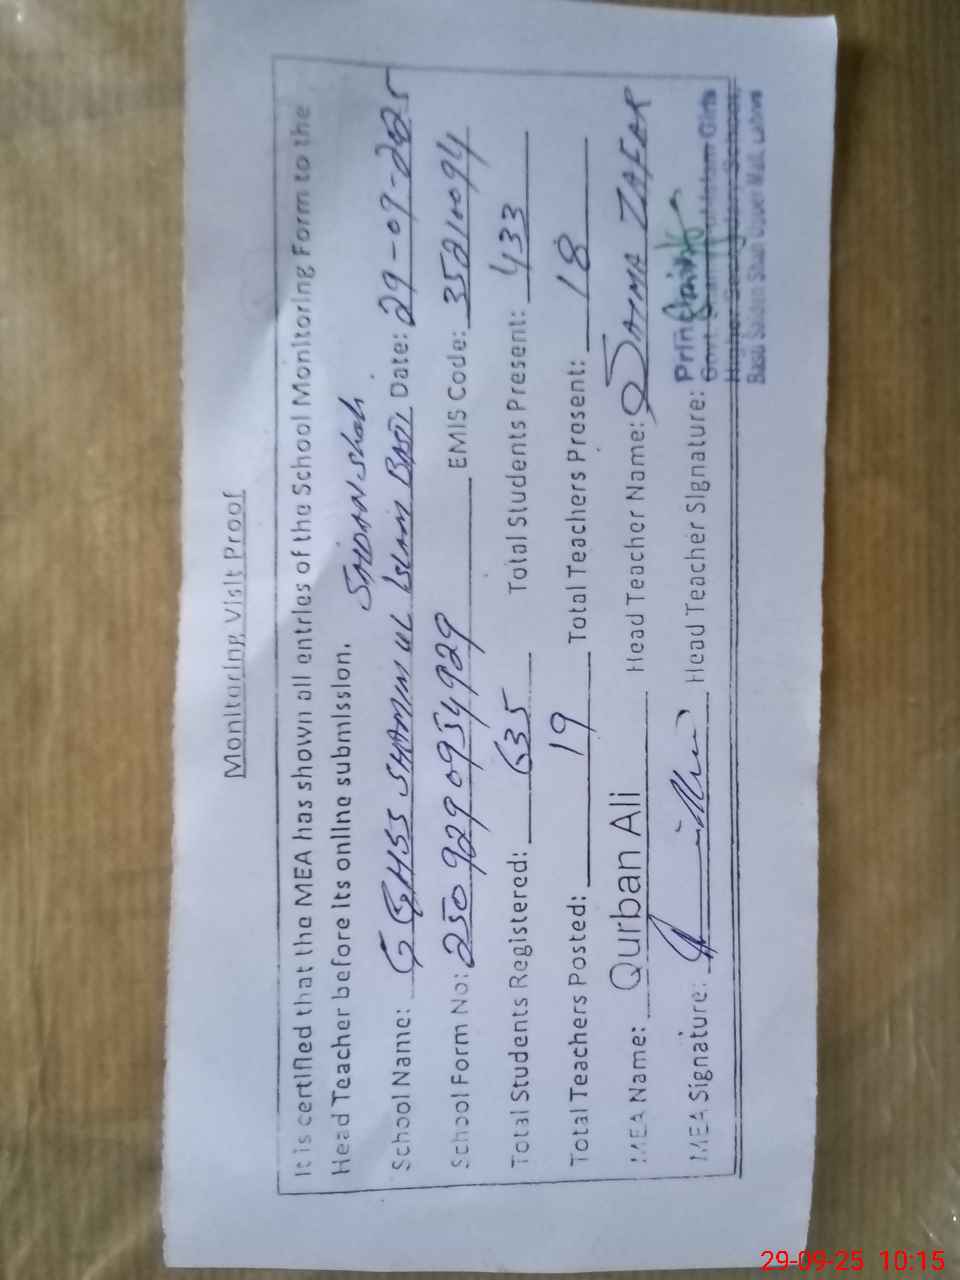 Monitoring Visit Proof
It is certified that the MEA has shown all entries of the School Monitoring Form to the
Head Teacher before its online submission.
SAIDAN Shah
School Name: GGHSS SHAMIM UL ISLAM BASTI Date: 29-09-2025
School Form No: 2509290954929 EMIS Code: 35210094
Total Students Registered: 635 Total Students Present: 433
Total Teachers Posted: 19 Total Teachers Present: 18
MEA Name: Qurban Ali Head Teacher Name: SAIMA ZAFAR
MEA Signature: Head Teacher Signature:
Govt. Islam Girls
Higher Secondary School,
Basti Saidan Shah Upper Mall, Lahore
29-09-25 10:15